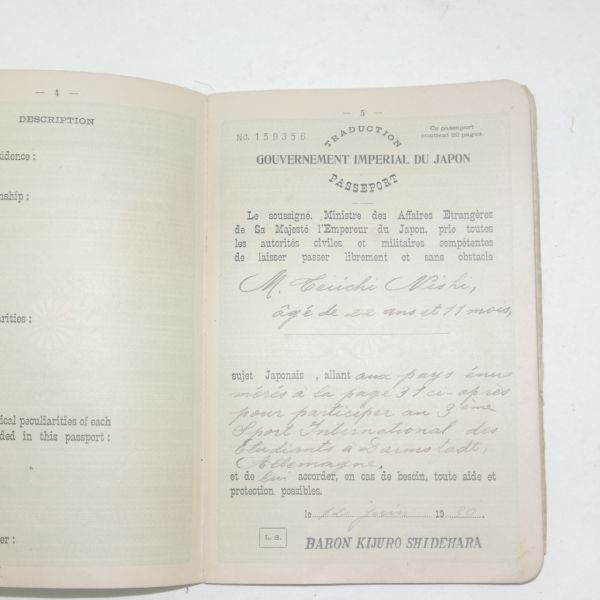 — 4 —
DESCRIPTION
sidence :
nship :
arities :
ical peculiarities of each
ded in this passport :
er :
— 5 —
No. 159356
TRADUCTION
Ce passeport
contient 32 pages.
GOUVERNEMENT IMPERIAL DU JAPON
PASSEPORT
Le soussigné, Ministre des Affaires Etrangères
de Sa Majesté l'Empereur du Japon, prie toutes
les autorités civiles et militaires compétentes
de laisser passer librement et sans obstacle
M. Teiichi Nishi,
âgé de 22 ans et 11 mois,
sujet Japonais , allant aux pays énu-
mérés à la page 31 ci-après
pour participer au 3ème
Sport International des
Etudiants à Darmstadt,
Allemagne,
et de lui accorder, en cas de besoin, toute aide et
protection possibles.
le 12 juin 1930.
L. S.
BARON KIJURO SHIDEHARA